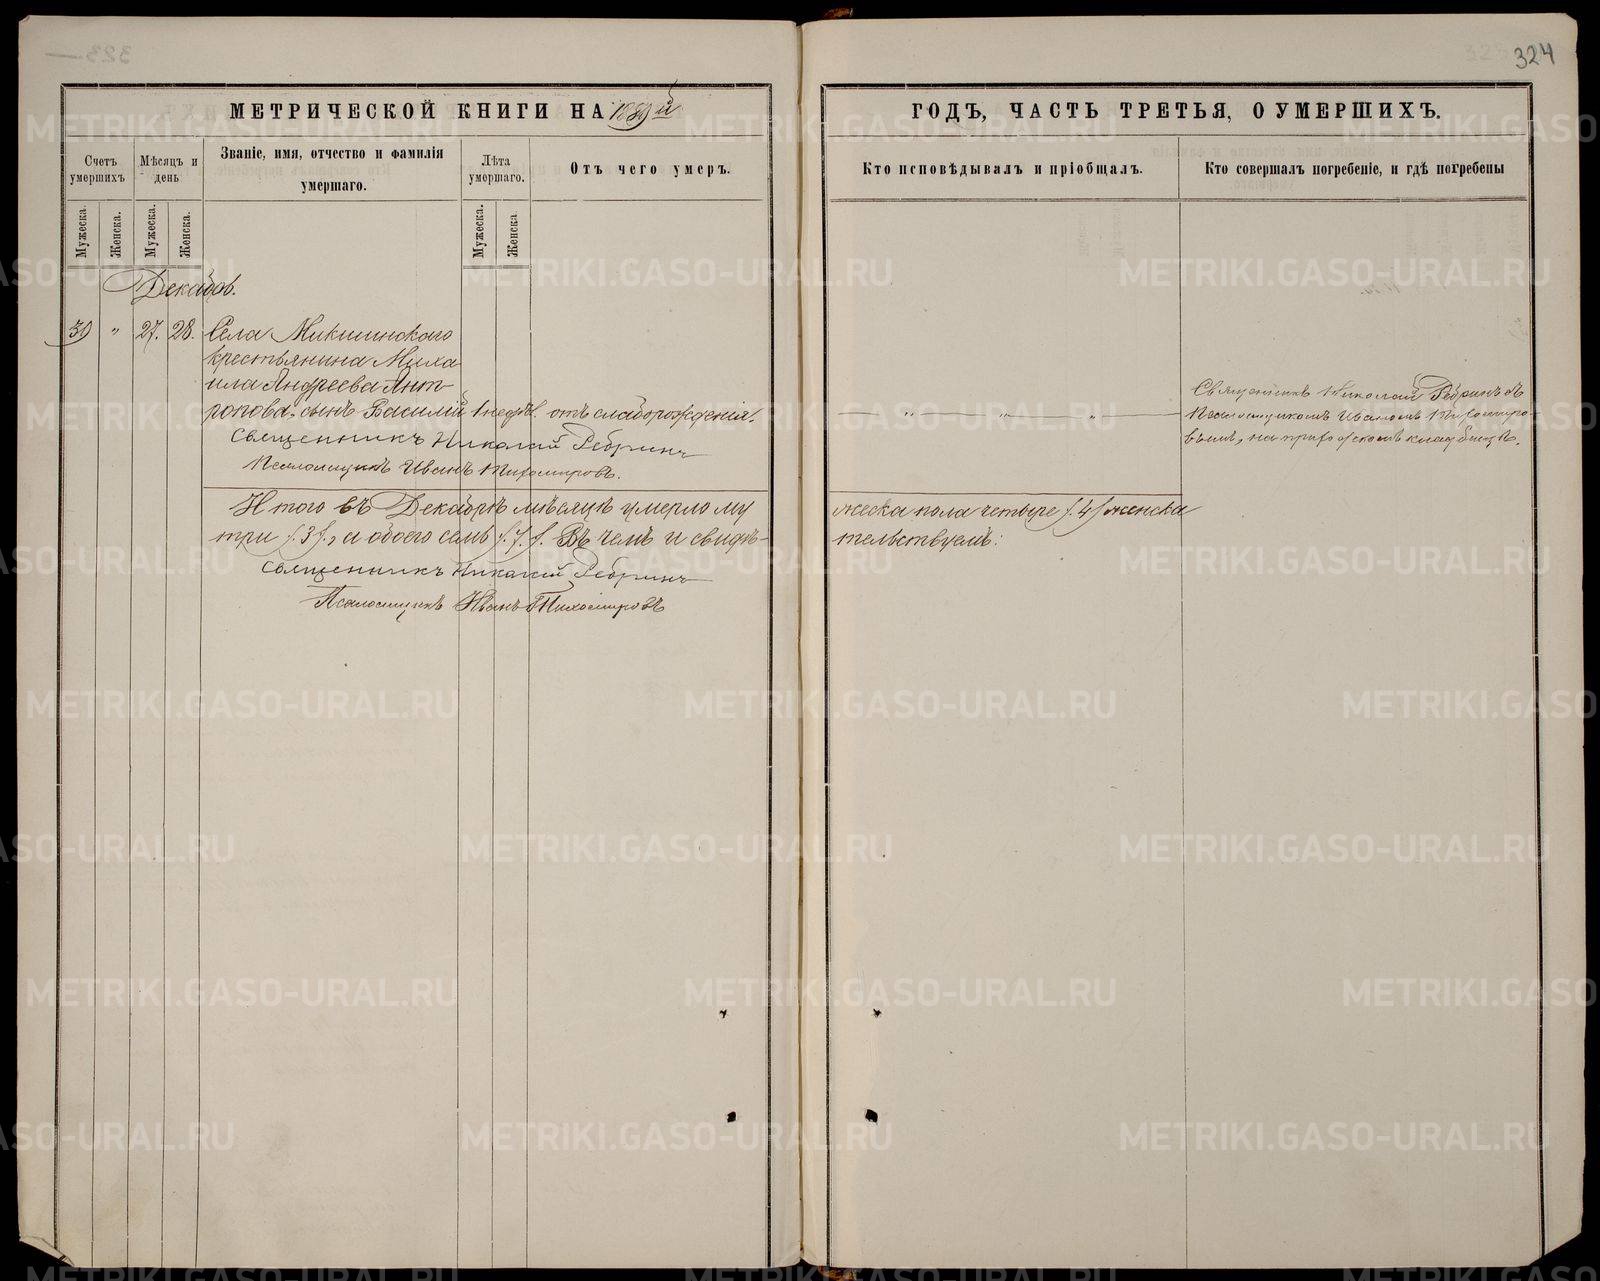 324
МЕТРИЧЕСКОЙ КНИГИ НА 1889й
ГОДЪ, ЧАСТЬ ТРЕТЬЯ, О УМЕРШИХЪ.
Счетъ умершихъ
Мѣсяцъ и день
Званіе, имя, отчество и фамилія умершаго.
Лѣта умершаго.
Отъ чего умеръ.
Кто исповѣдывалъ и пріобщалъ.
Кто совершалъ погребеніе, и гдѣ погребены
Мужеска.
Женска.
Мужеска.
Женска.
Мужеска.
Женска.
Декабрь.
39 " 27. 28. Села Микшинского
крестьянина Миха
ила Андреева Ант-
ропова, сынъ Василій 1 недѣл. отъ слаборожденія.
Священникъ Николай Ребринъ
Псаломщикъ Иванъ Тихомировъ.
Священникъ Николай Ребринъ съ
Псаломщикомъ Иваномъ Тихомиро-
вымъ, на приходскомъ кладбищѣ.
Итого въ Декабрѣ мѣсяцѣ умерло му
жеска пола четыре /.4/ женска
три /.3/., а обоего семь /.7./. Въ чемъ и свидѣ-
тельствуемъ:
Священникъ Николай Ребринъ
Псаломщикъ Иванъ Тихомировъ
METRIKI.GASO-URAL.RU